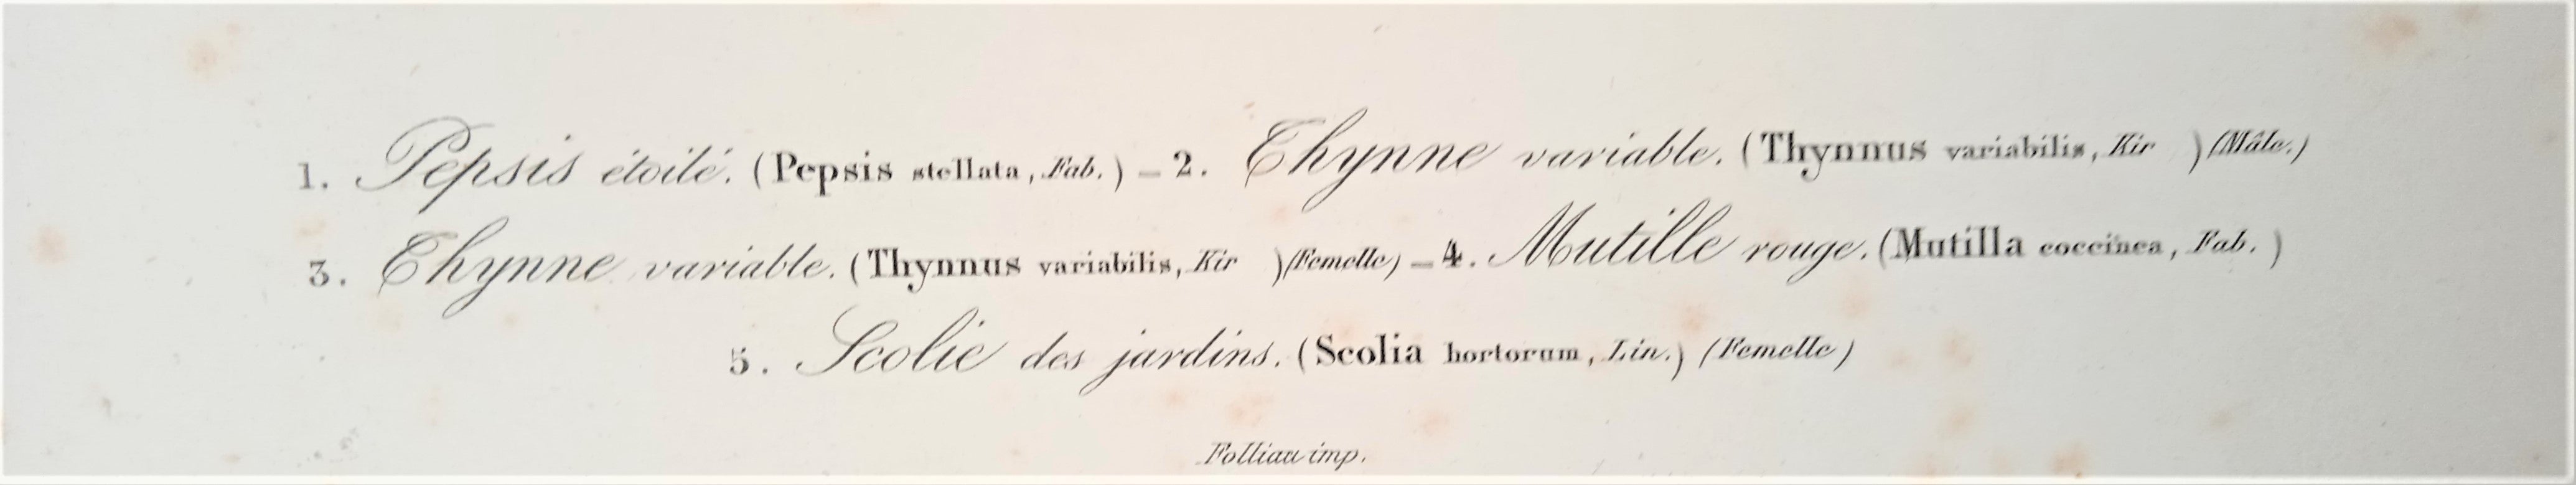 1. Pepsis étoilé. (Pepsis stellata, Fab.) — 2. Thynne variable. (Thynnus variabilis, Kir ) (Mâle.)
3. Thynne variable. (Thynnus variabilis, Kir ) (Femelle) — 4. Mutille rouge. (Mutilla coccinea, Fab. )
5. Scolie des jardins. (Scolia hortorum, Lin.) (Femelle)
Folliau imp.